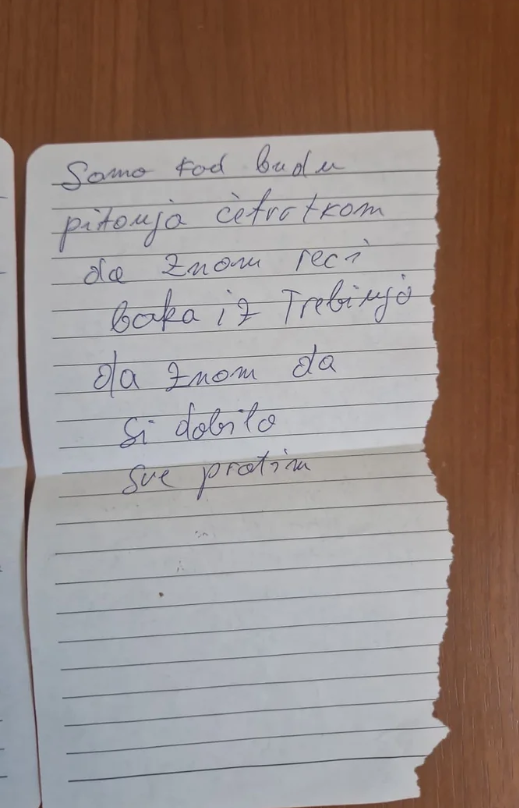 Samo kod budu
pitonja četvrtkom
da znom reci
baka iz Trebinja
da znom da
si dobila
sve pratim